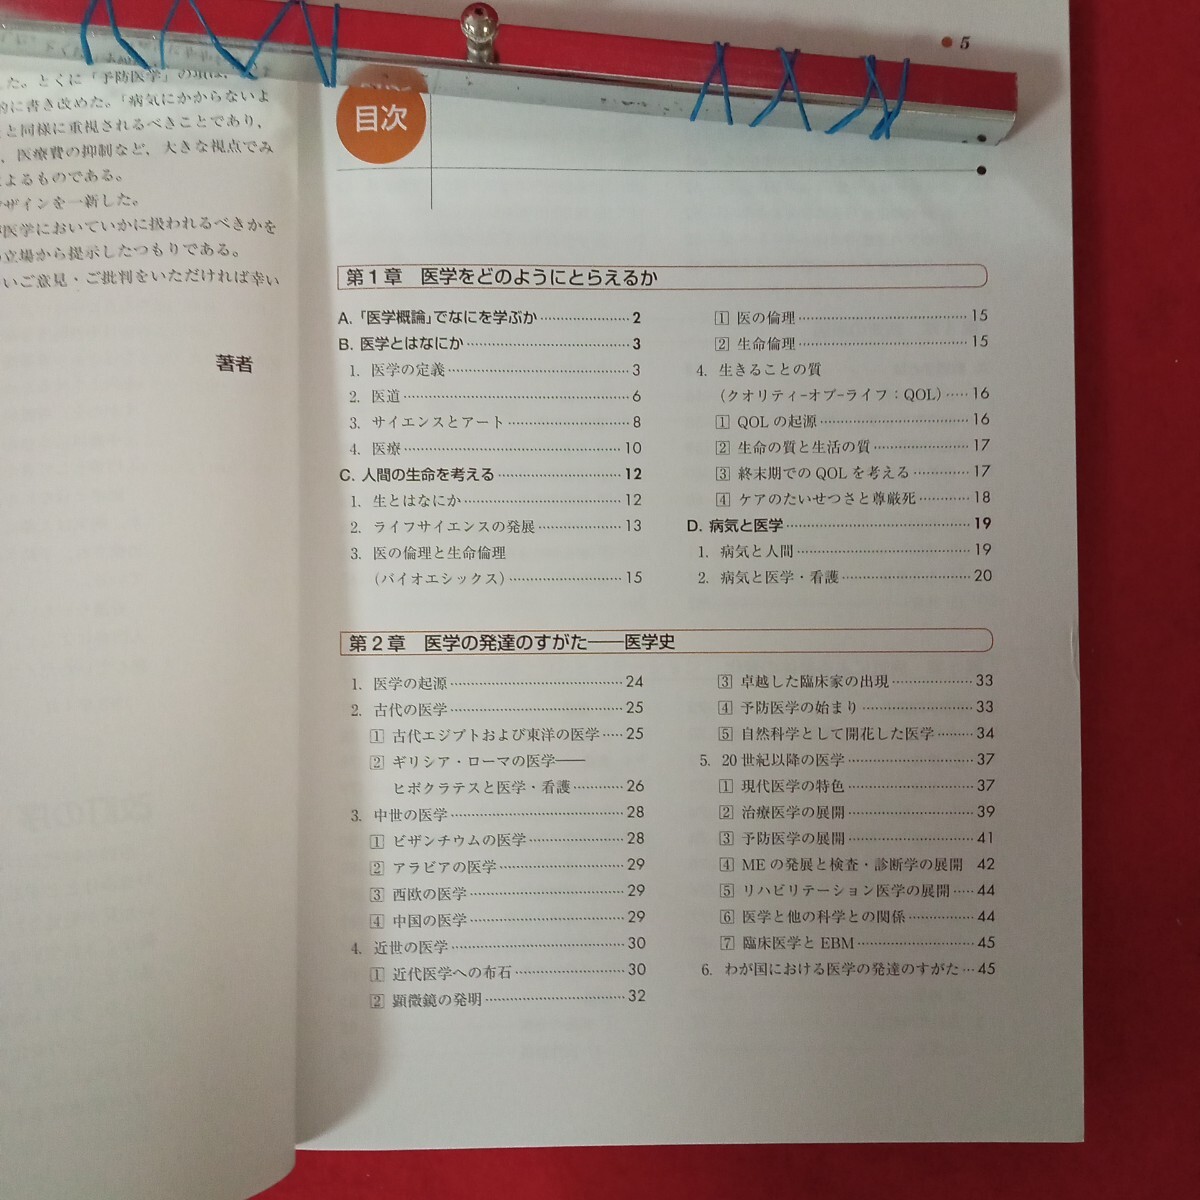 た。とくに「予防医学」の項は、
的に書き改めた。「病気にかからないよ
と同様に重視されるべきことであり、
、医療費の抑制など、大きな視点でみ
よるものである。
デザインを一新した。
医学においていかに扱われるべきかを
立場から提示したつもりである。
いご意見・ご批判をいただければ幸い
著者
5
目次
第1章 医学をどのようにとらえるか
A. 「医学概論」でなにを学ぶか 2
B. 医学とはなにか 3
1. 医学の定義 3
2. 医道 6
3. サイエンスとアート 8
4. 医療 10
C. 人間の生命を考える 12
1. 生とはなにか 12
2. ライフサイエンスの発展 13
3. 医の倫理と生命倫理
（バイオエシックス） 15
1 医の倫理 15
2 生命倫理 15
4. 生きることの質
（クオリティ-オブ-ライフ：QOL） 16
1 QOLの起源 16
2 生命の質と生活の質 17
3 終末期でのQOLを考える 17
4 ケアのたいせつさと尊厳死 18
D. 病気と医学 19
1. 病気と人間 19
2. 病気と医学・看護 20
第2章 医学の発達のすがた――医学史
1. 医学の起源 24
2. 古代の医学 25
1 古代エジプトおよび東洋の医学 25
2 ギリシア・ローマの医学――
ヒポクラテスと医学・看護 26
3. 中世の医学 28
1 ビザンチウムの医学 28
2 アラビアの医学 29
3 西欧の医学 29
4 中国の医学 29
4. 近世の医学 30
1 近代医学への布石 30
2 顕微鏡の発明 32
3 卓越した臨床家の出現 33
4 予防医学の始まり 33
5 自然科学として開花した医学 34
5. 20世紀以降の医学 37
1 現代医学の特色 37
2 治療医学の展開 39
3 予防医学の展開 41
4 MEの発展と検査・診断学の展開 42
5 リハビリテーション医学の展開 44
6 医学と他の科学との関係 44
7 臨床医学とEBM 45
6. わが国における医学の発達のすがた 45